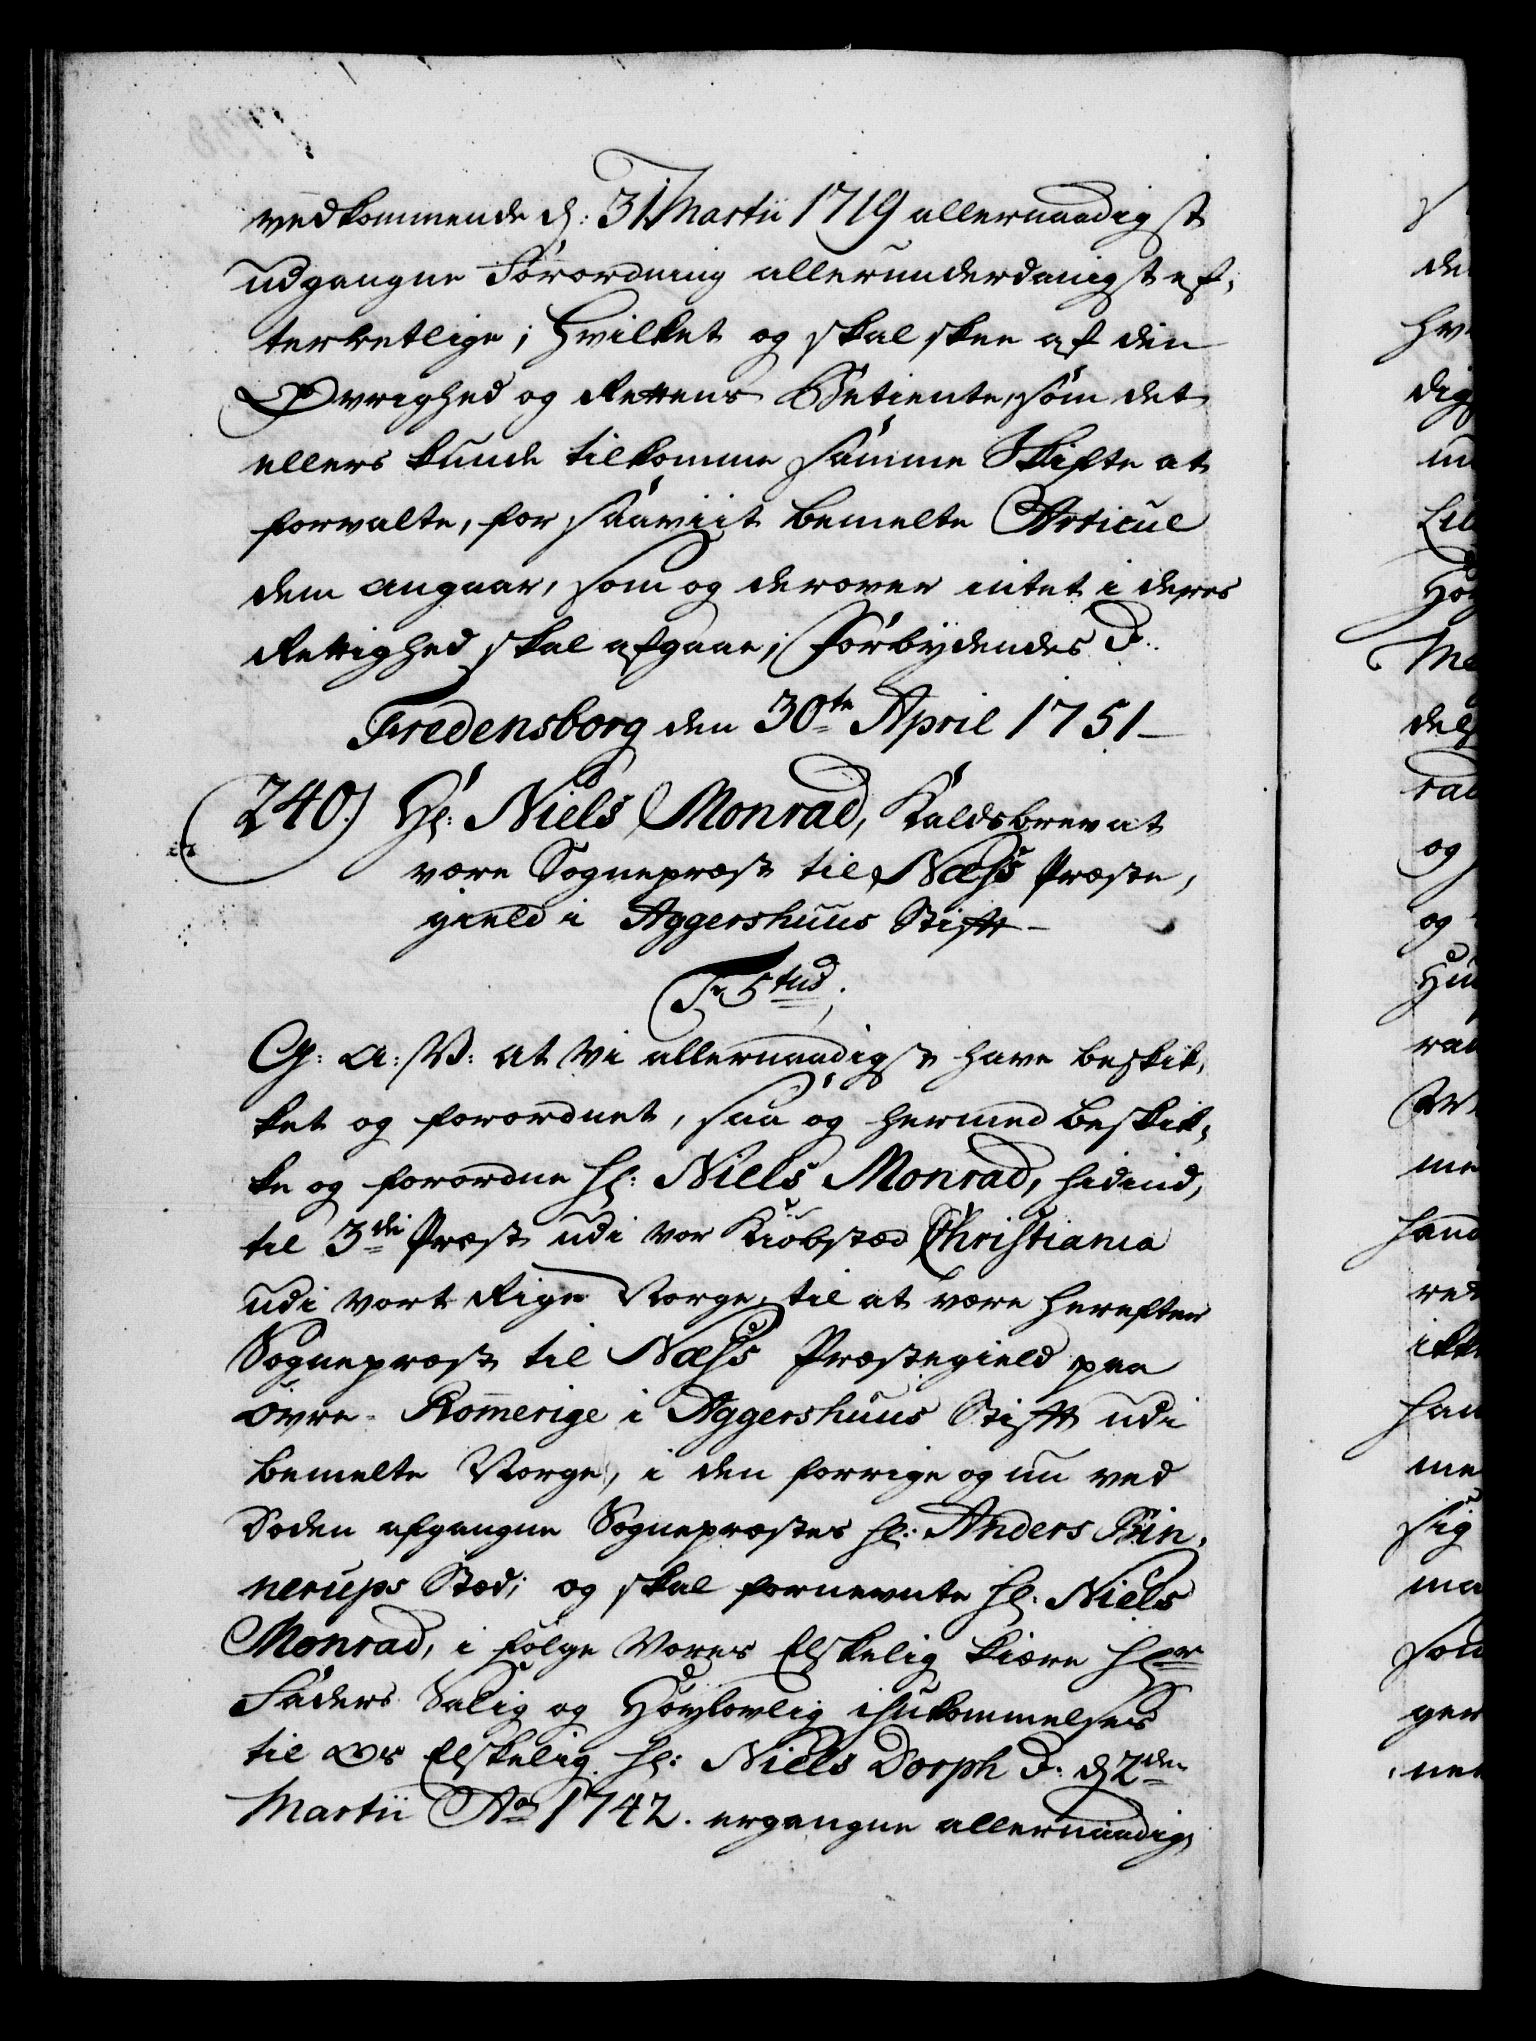 vedkommende d: 31. Martii 1719 allernaadigst
udgangne Forordning allerunderdanigst ef-
terretlige; hvilket og skal skee af den
Øvrighed og Rettens Betiente, som det
ellers kunde tilkomme samme Skifte at
forvalte, for saaviit bemelte Articul
dem angaaer, som og derover intet i deres
Rettighed skal afgaae; Forbydendes &.
Fredensborg den 30te April 1751
240.) Hr: Niels Monrad, Kaldsbrev at
være Sognepræst til Næss Præste-
gield i Aggershuus Stift
F. 5tus.
G: a: V: at Vi allernaadigst have beskik-
ket og forordnet, saa og hermed beskik-
ke og forordne Hr: Niels Monrad, hidind-
til 3die Præst udi vor Kiøbsted Christiania
udi vort Rige Norge, til at være herefter
Sognepræst til Næss Præstegield paa
Øvre-Romerige i Aggershuus Stift udi
bemelte Norge, i den forrige og nu ved
Døden afgangne Sognepræstes Hr: Anders Pin-
nerups Sted; og skal fornevnte Hr: Niels
Monrad, i følge Vores Elskelig kiære Hr
Faders Salig og Høylovlig ihukommelses
til os Elskelig Hr: Niels Dorph &: d 2den
Martii Ao 1742. ergangne allernaadig-